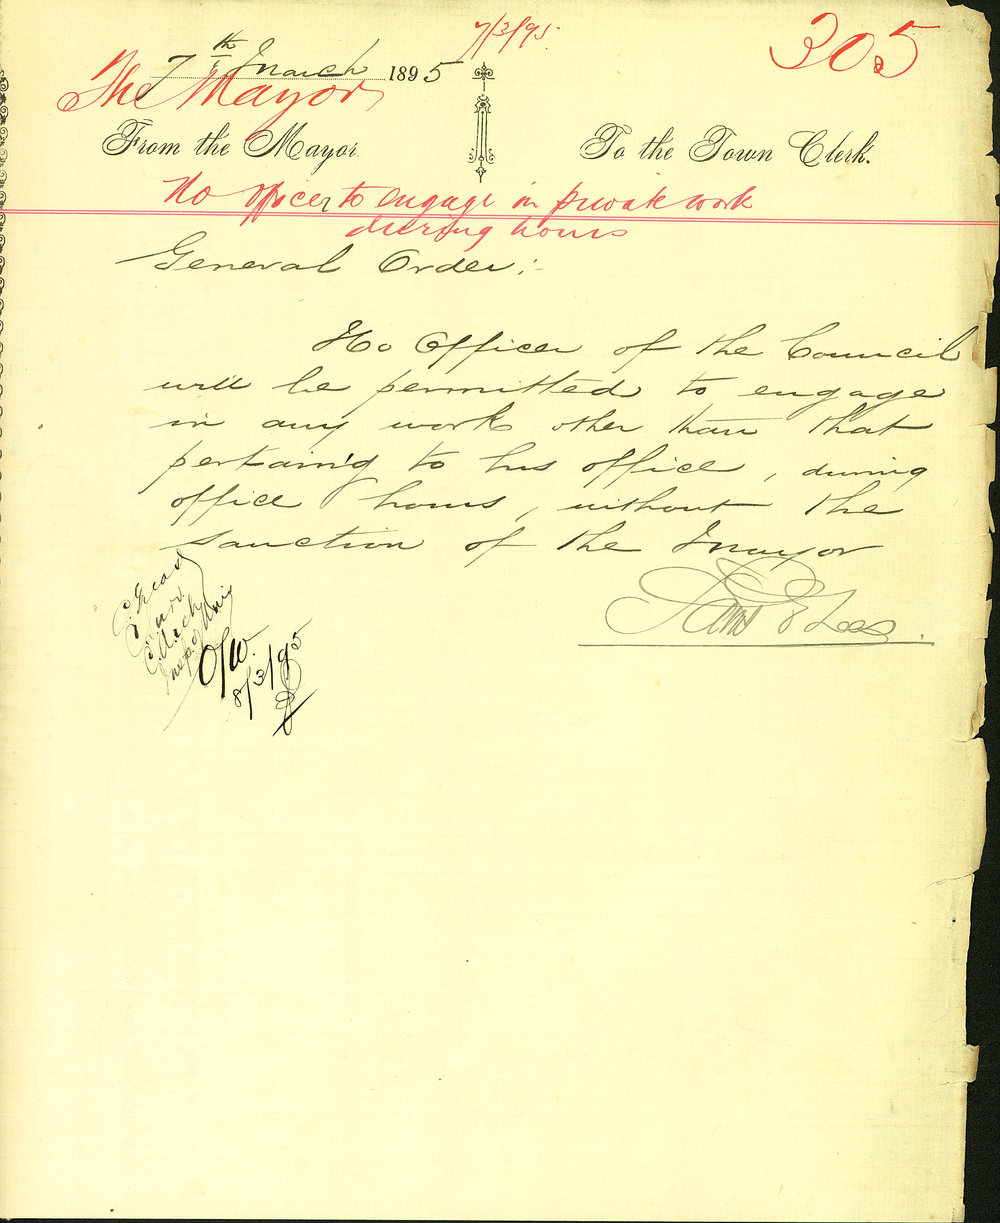 7/3/95
305
7th March 1895
The Mayor
From the Mayor. To the Town Clerk.
No officer to engage in private work
during hours
General Order:-
No Officer of the Council
will be permitted to engage
in any work other than that
pertain'g to his office, during
office hours, without the
sanction of the Mayor
8/3/95